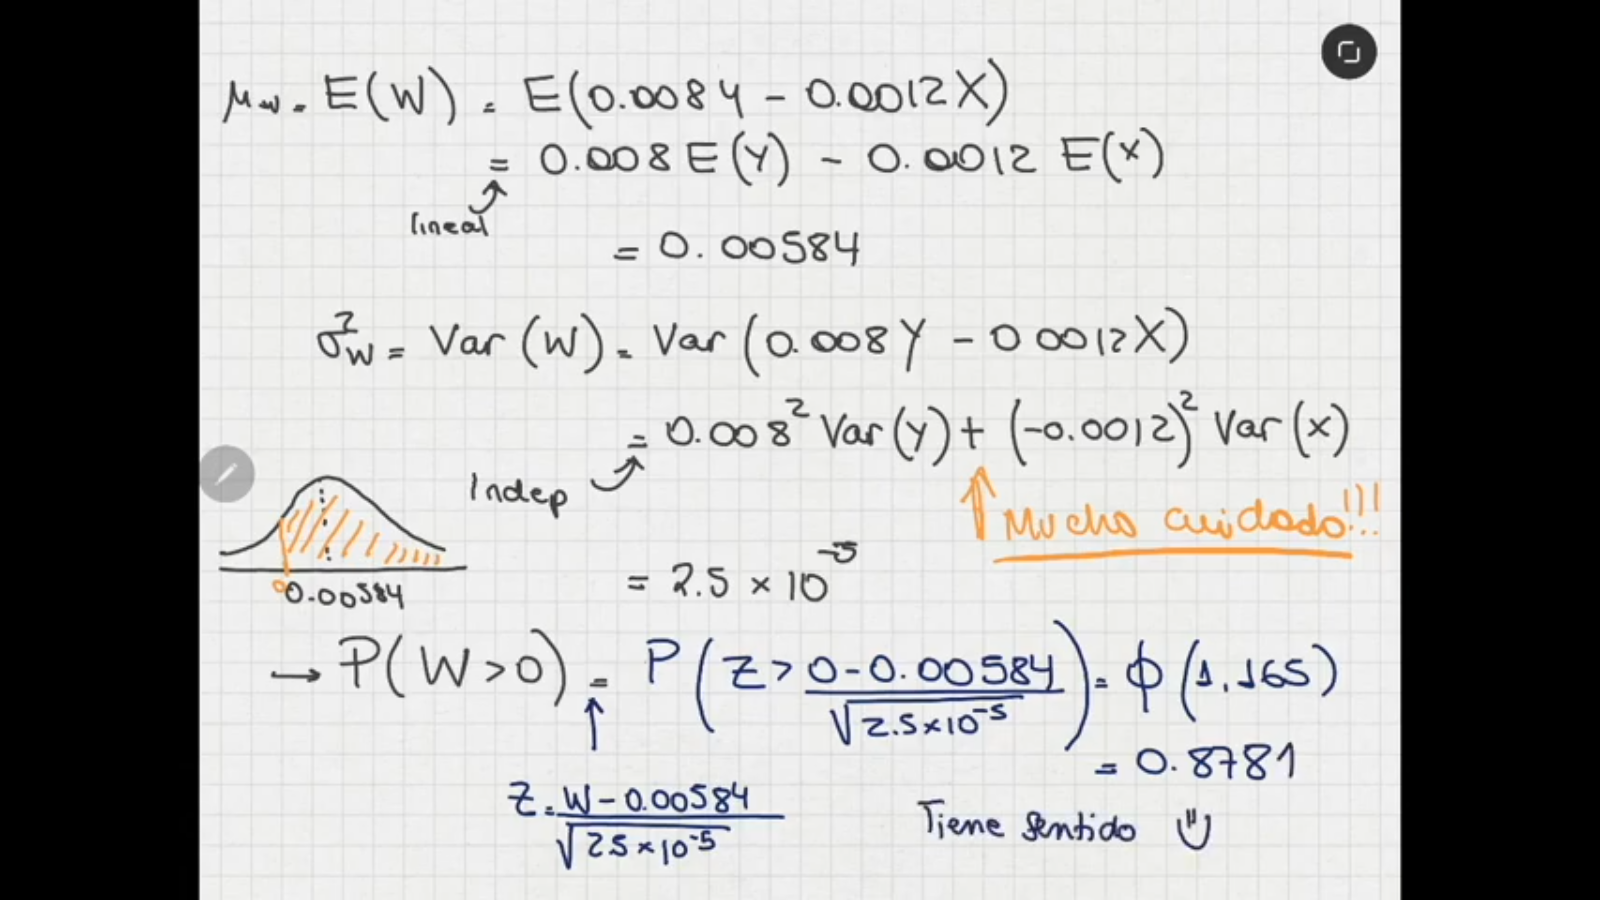 μw = E(W) = E(0.008Y - 0.0012X)
= 0.008 E(Y) - 0.0012 E(X)
lineal
= 0.00584
σ²w = Var(W) = Var(0.008Y - 0.0012X)
= 0.008² Var(Y) + (-0.0012)² Var(X)
Indep
Mucho cuidado!!!
0 0.00584
= 2.5 × 10⁻⁵
→ P(W>0) = P(Z > (0-0.00584)/√(2.5×10⁻⁵)) = ϕ(1.165)
= 0.8781
Z = (W - 0.00584)/√(2.5×10⁻⁵)
Tiene sentido